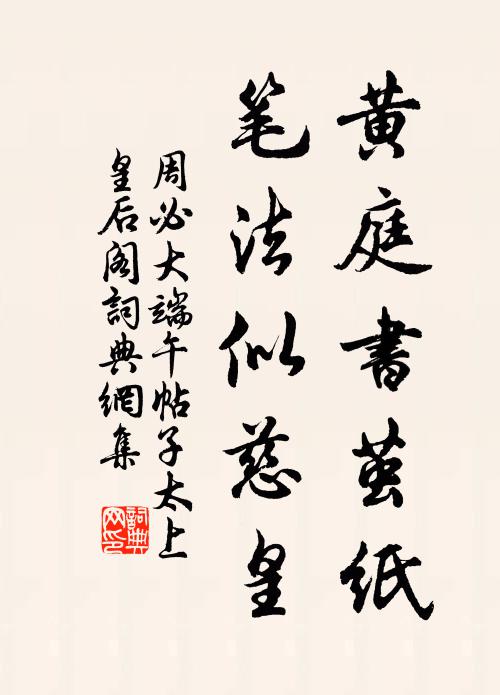 黄庭書茧紙
笔法似慈皇
周必大端午帖子太上
皇后阁詞典網集
詞典网印